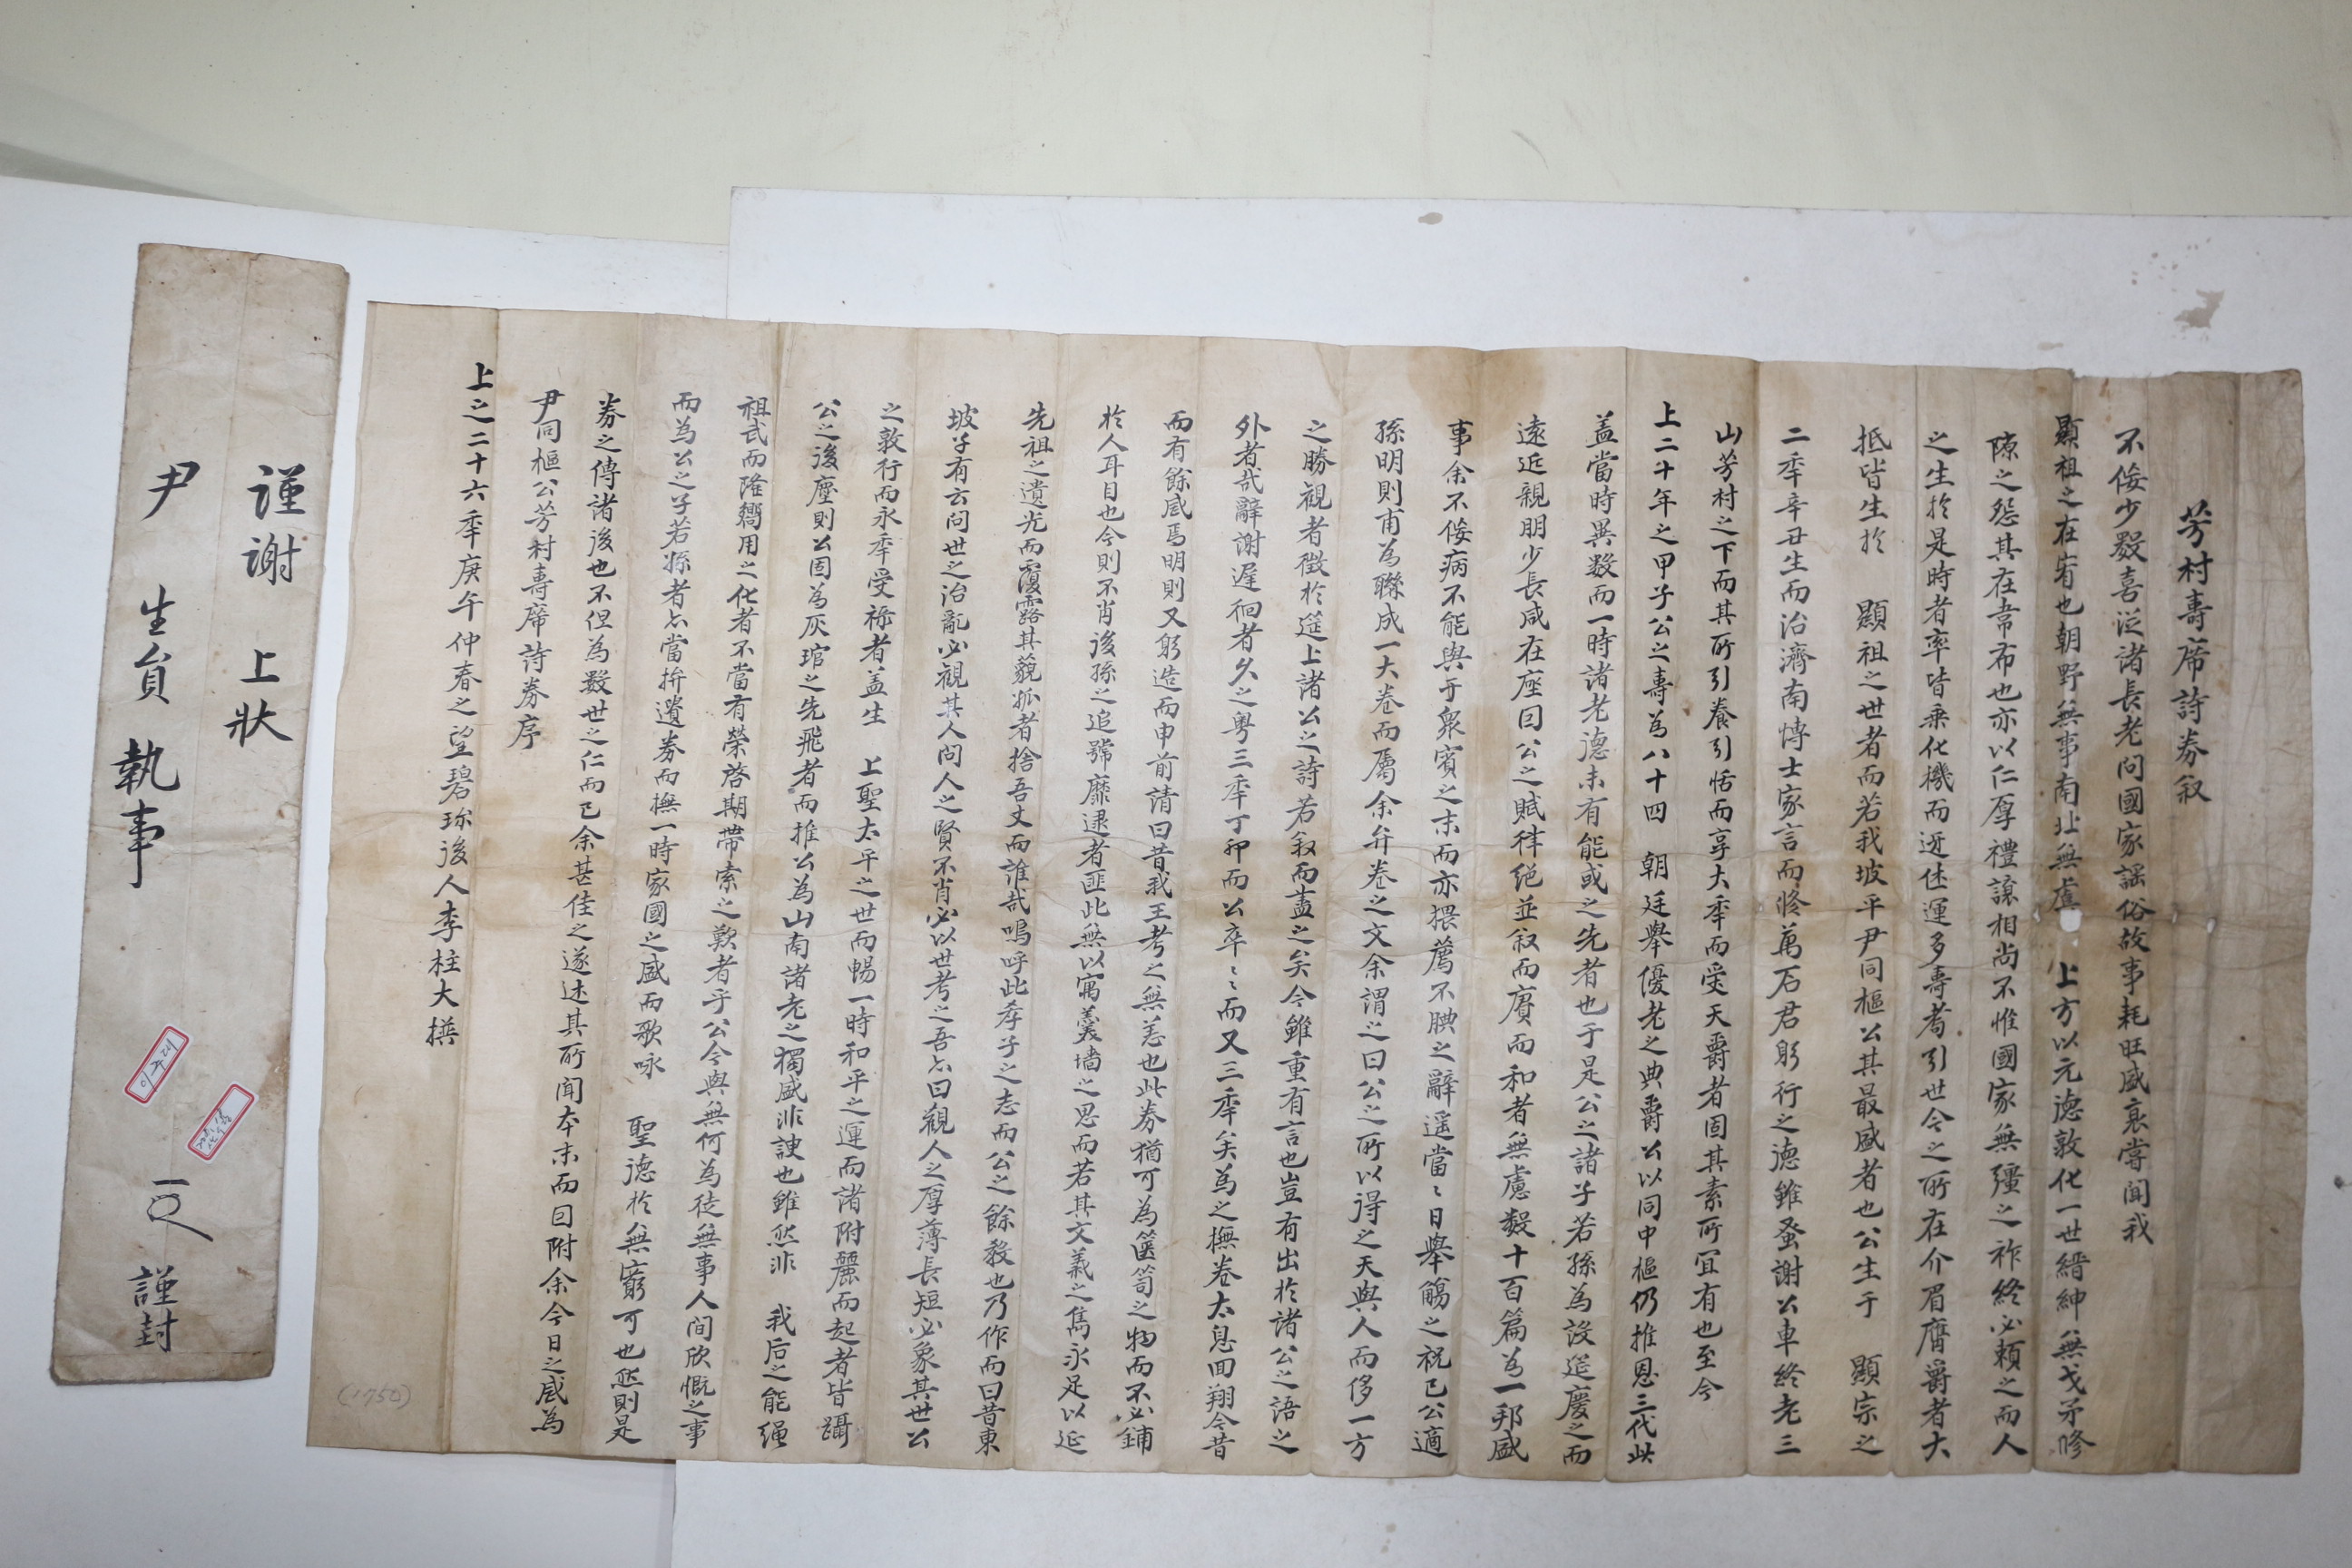 芳村壽席詩券叙
不佞少數喜從諸長老問國家謠俗故事耗旺盛衰嘗聞我
顯祖之在宥也朝野無事南北無虞 上方以元德敦化一世縉紳無戈矛修
隙之怨其在韋布也亦以仁厚禮讓相尚不惟國家無疆之祚終必賴之而人
之生於是時者率皆乘化機而迓佳運多壽耉引世今之所在介眉膺爵者大
抵皆生於 顯祖之世者而若我坡平尹同樞公其最盛者也公生于 顯宗之
二年辛丑生而治濟南博士家言而脩萬石君躬行之德雖蚤謝公車終老三
山芳村之下而其所引養引恬而享大年而受天爵者固其素所宜有也至今
上二十年之甲子公之壽為八十四 朝廷舉優老之典爵公以同中樞仍推恩三代此
盖當時異數而一時諸老德未有能或之先者也于是公之諸子若孫為設筵慶之而
遠近親朋少長咸在座囙公之賦律絕並叙而賡而和者無慮數十百篇為一邦盛
事余不佞病不能與于衆賓之末而亦猥薦不腆之辭遥當〻日舉觴之祝已公適
孫明則甫為聯成一大卷而屬余弁卷之文余謂之曰公之所以得之天與人而侈一方
之勝觀者徵於筵上諸公之詩若叙而盡之矣今雖重有言也豈有出於諸公之語之
外者哉辭謝遲徊者久之粤三年丁卯而公卒〻而又三年矣為之撫卷太息回翔今昔
而有餘感焉明則又躬造而申前請曰昔我王考之無恙也此券猶可為篋笥之物而不必鋪
於人耳目也今則不肖後孫之追號靡逮者匪此無以寓羹墻之思而若其文義之雋永足以延
先祖之遺光而覆露其藐孤者捨吾丈而誰哉嗚呼此孝子之志而公之餘教也乃作而曰昔東
坡子有云問世之治亂必觀其人問人之賢不肖必以世考之吾亦曰觀人之厚薄長短必象其世公
之敦行而永年受祿者盖生 上聖太平之世而暢一時和平之運而諸附麗而起者皆躡
公之後塵則公固為灰琯之先飛者而推公為山南諸老之獨盛非諛也雖然非 我后之能繩
祖武而隆嚮用之化者不當有榮啓期帶索之歎者乎公今與無何為徒無事人間欣慨之事
而為公之子若孫者亦當拚遺券而撫一時家國之盛而歌咏 聖德於無窮可也然則是
券之傳諸後也不但為數世之仁而已余甚佳之遂述其所聞本末而囙附余今日之感為
尹同樞公芳村壽席詩券序
上之二十六年庚午仲春之望碧珍後人李柱大撰
(1750)
謹謝 上狀
尹 生員 執事
謹封
이주대